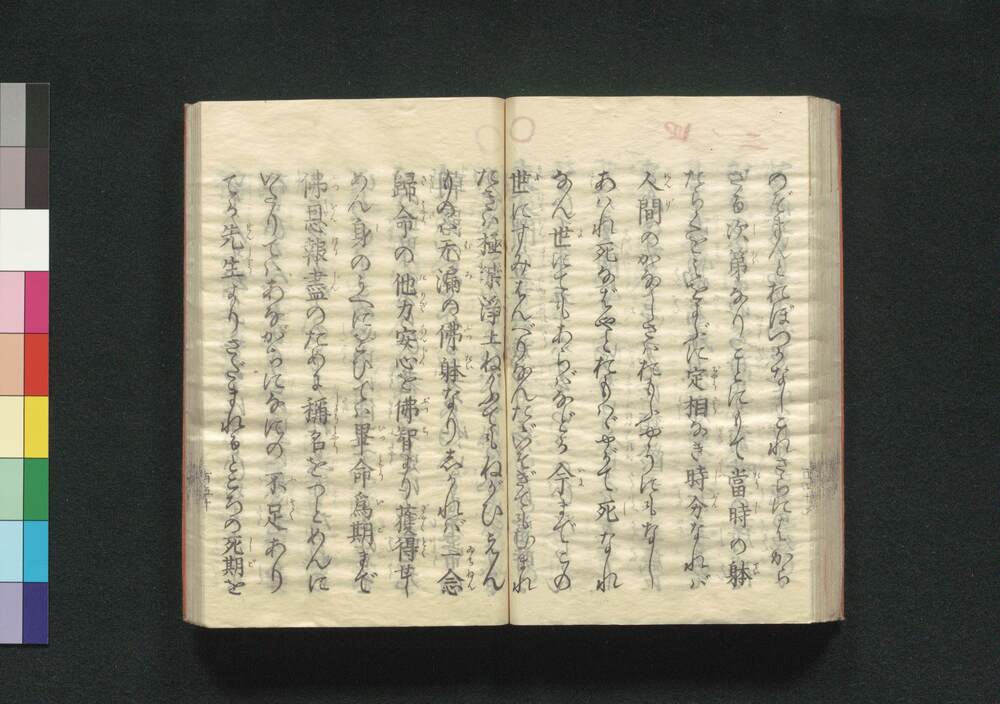 のぞまんとおぼつかなしこれさらにはから
ざる次第なりことにもて當時の躰
たらくをみをよぶに定相なき時分なれば
人間のかなしさはおもふやうにもなし
あはれ死なばやとおもはゞやがて死なれ
なん世にてもあらばなどか今までこの
世にすみはんべりなんたゞいそぎてもむまれ
たきは極樂淨土ねがふてもねがひえん
ものは无漏の佛躰なりしかれば一念
歸命の他力安心を佛智より獲得せし
めん身のうへにをひては畢命爲期まで
佛恩報盡のために稱名をつとめんに
いたりてはあながちになにの不足あり
てか先生よりさだまれるところの死期を
百五十